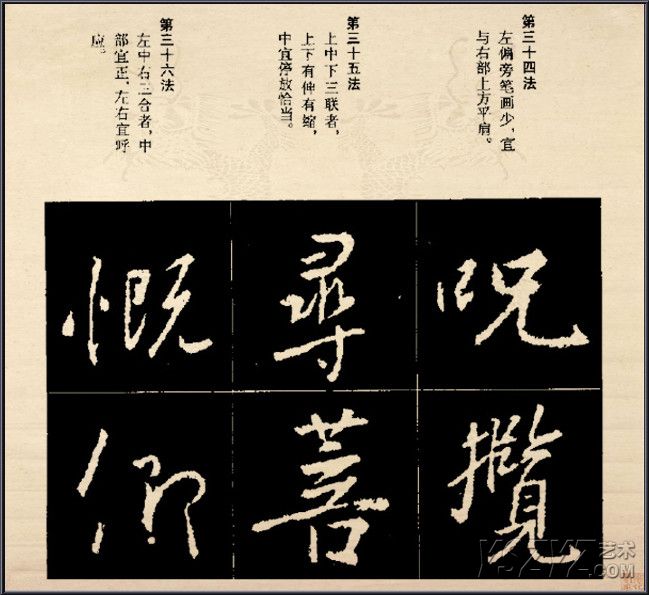 第三十四法
左偏旁笔画少，宜
与右部上方平肩。
第三十五法
上中下三联者，
上下有伸有缩，
中宜停放恰当。
第三十六法
左中右三合者，中
部宜正，左右宜呼
应。
呪
攬
尋
菩
慨
仰
YSZYZ艺术
.COM